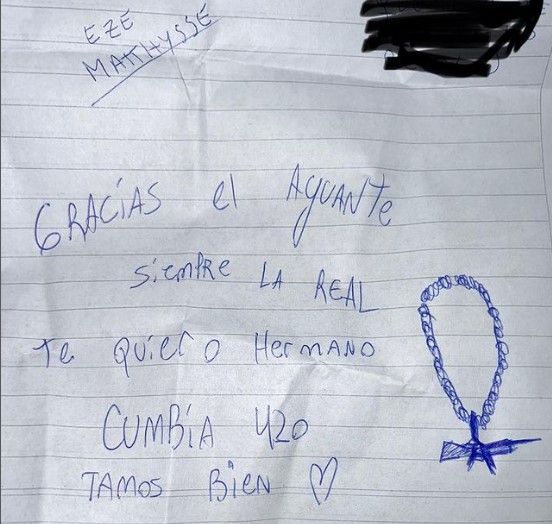 EZE
MATHYSSE
GRACIAS el AGUANTE
SiemPRE LA REAL
Te QUIERO HerMANO
CUMBIA 420
TAMOS BIEN ♡